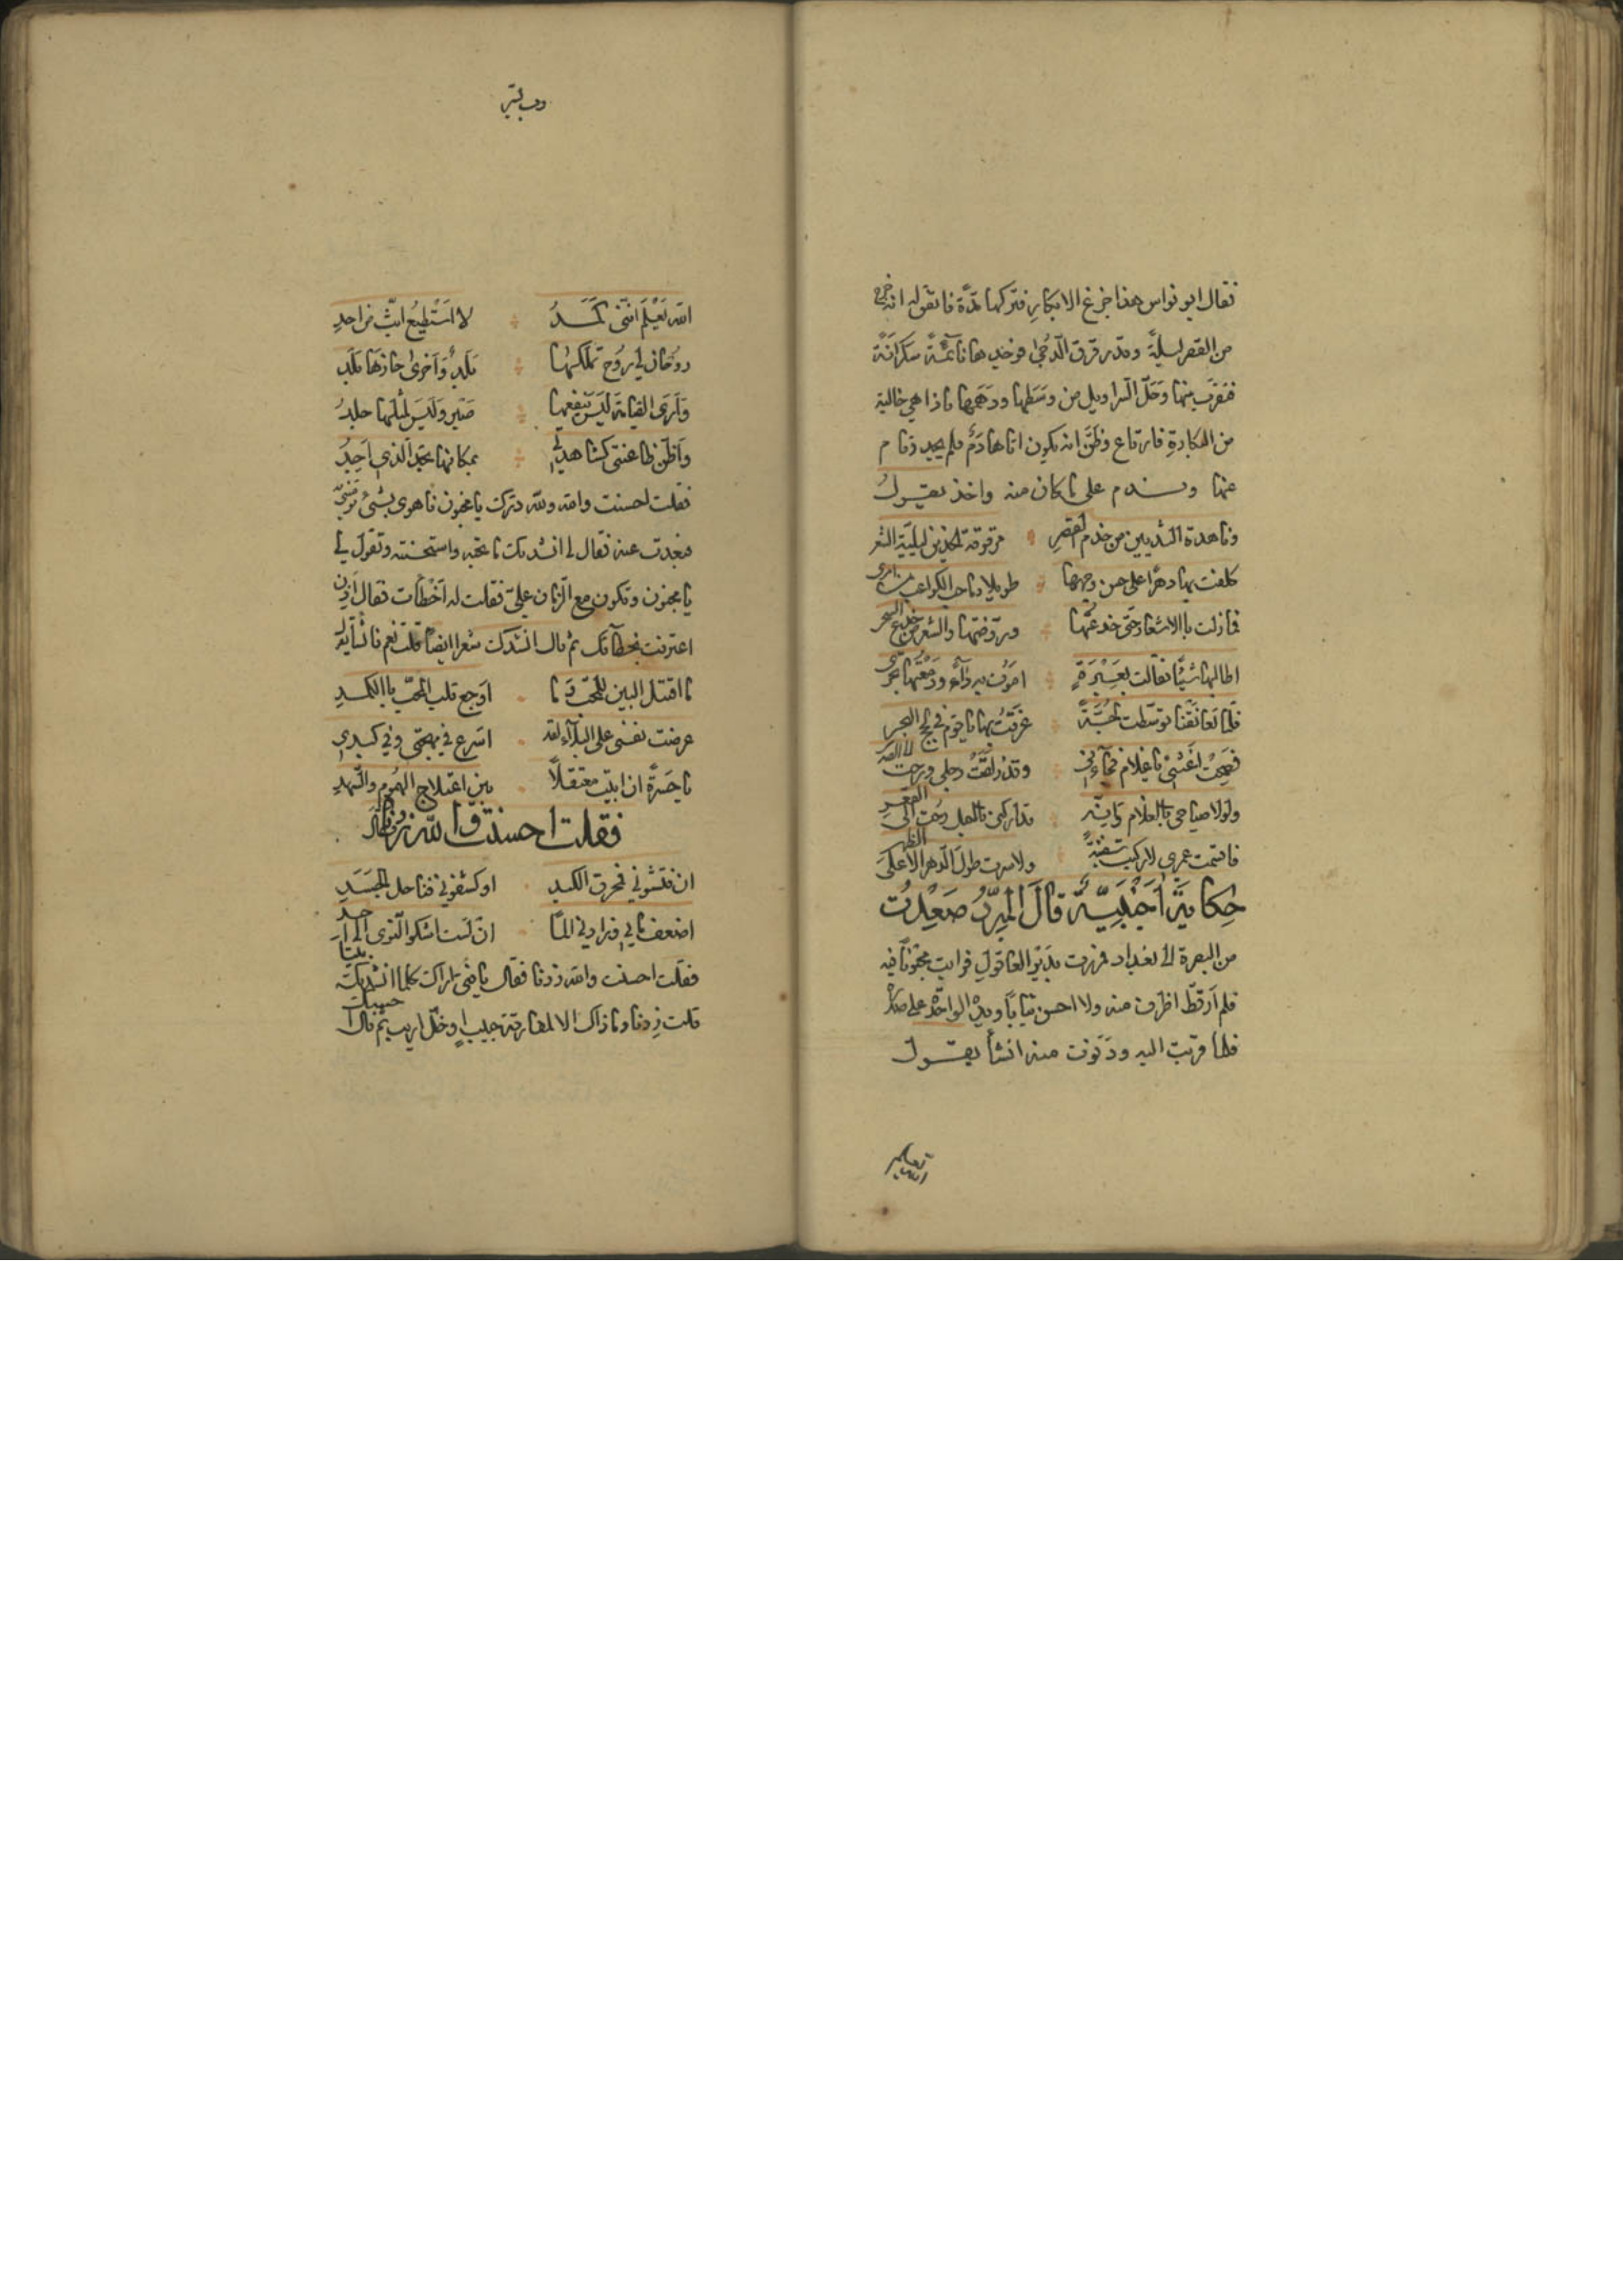 فقال ابو نواس هذا جزع الابكار فتركها مدة فاتفق له انه خرج
من القصر ليلة وقد رقرق الدجى فوجدها نائمة سكرانة
فقرب منها وحل السراويل من وسطها ودهمها فاذا هي خالية
من البكارة فارتاع وظن انه يكون اتاها دم فلم يجد وقام
عنها وندم على ما كان منه واخذ يقول
وناهدة الثديين من خدم القصر مرقوقة الخدين ليلية الشعر
كلفت بها دهرا على حسن وجهها طويلا وما حب الكواعب من امرى
فما زلت بالاشعار حتى خدعتها وروضتها والشعر من خدع السحر
اطالبها شيئا فقالت بعبرة اموت به داء ودمعتها تجرى
فلما تعانقنا توسطت لجة غرقت بها يا قوم في لجج البحر
فصحت اغثني يا غلام فجاءني وقد زلقت رجلي ورحت الى الصدر
ولولا صياحي بالغلام وانه تداركني بالحبل رحت الى القعر
فاقسمت عمري لا ركبت سفينة ولا سرت طول الدهر الا على الظهر
حكاية اجنبية قال المبرد صعدت
من البصرة الى بغداد فمررت بدير العاقول فرايت مجنونا فيه
فلم ار قط اظرف منه ولا احسن ثيابا ويده الواحدة على صدره
فلما قربت اليه ودنوت منه انشأ يقول
الله يعلم انني كمد لا استطيع ابث من اجد
روحان لي روح تملكها بلد واخرى حازها بلد
وارى القيامة ليس ينفعها صبر وليس لمثلها جلد
واظن ظاعنتي كشاهدتي بمكانها تجد الذي اجد
فقلت احسنت والله ولله درك يا مجنون فاهوى بشئ يرميني به
فبعدت عنه فقال لي انشدتك ما تحبه واستحسنته وتقول لي
يا مجنون وتكون مع الزمان علي فقلت له اخطأت فقال اذن
اعترفت بخطائك ثم قال انشدك شعرا ايضا قلت نعم فانشأ يقول
ما اقتل البين للمحب وما اوجع قلب المحب بالكمد
عرضت نفسي على البلاء لقد اسرع في مهجتي وفي كبدي
يا حسرة ان ابيت معتقلا بين اعتلاج الهموم والسهد
فقلت احسنت والله زدني فقال
ان فتشوني فمحرق الكبد او كشفوني فناحل الجسد
اضعف ما بي وزادني الما ان لست اشكو النوى الى احد
فقلت احسنت والله زدنا فقال يا فتى اراك كلما انشدتك بيتا
قلت زدنا وما ذاك الا لمفارقة حبيب او خل اريب ثم قال